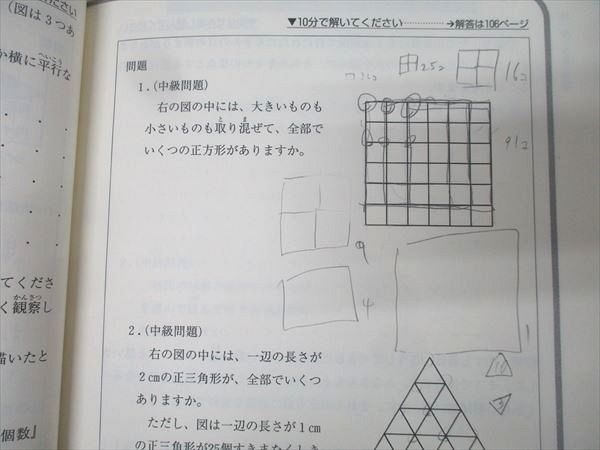 ださい
(図は3つあ
か横に平行な
へいこう
てくださ
く観察し
かんさつ
描いたと
個数』
▼10分で解いてください…………→解答は106ページ
問題
1.(中級問題)
右の図の中には、大きいものも
小さいものも取り混ぜて、全部で
と ま
いくつの正方形がありますか。
25コ
16コ
91コ
9
4
1
2.(中級問題)
右の図の中には、一辺の長さが
2cmの正三角形が、全部でいくつ
ありますか。
ただし、図は一辺の長さが1cm
の正三角形が25個すきまなくしき
10
3